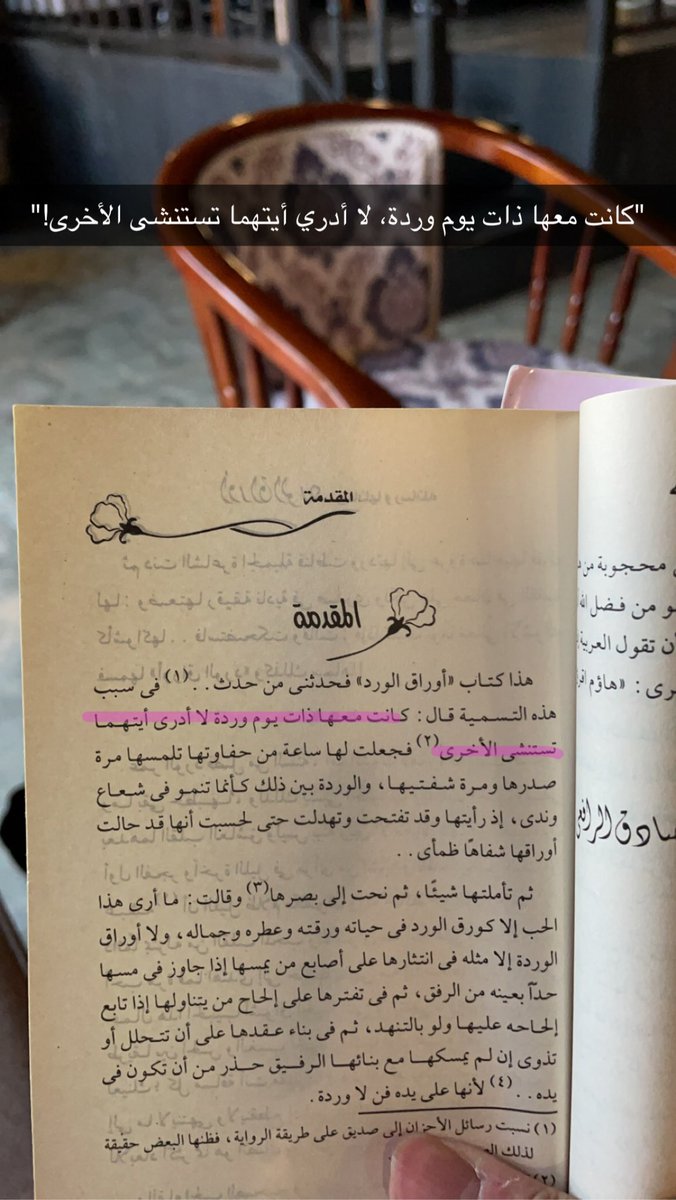 "كانت معها ذات يوم وردة، لا أدري أيتهما تستنشى الأخرى!"
المقدمة
المقدمة
هذا كتاب «أوراق الورد» فحدثنى من حدث.. (١) فى سبب
هذه التسمية قال: كانت معها ذات يوم وردة لا أدرى أيتهما
تستنشى الأخرى (٢) فجعلت لها ساعة من حفاوتها تلمسها مرة
صدرها ومرة شفتيها، والوردة بين ذلك كأنما تنمو فى شعاع
وندى، إذ رأيتها وقد تفتحت وتهدلت حتى لحسبت أنها قد حالت
أوراقها شفاهًا ظمأى..
ثم تأملتها شيئًا، ثم نحت إلى بصرها (٣) وقالت: ما أرى هذا
الحب إلا كورق الورد فى حياته ورقته وعطره وجماله، ولا أوراق
الوردة إلا مثله فى انتثارها على أصابع من يمسها إذا جاوز فى مسها
حدآ بعينه من الرفق، ثم فى تفترها على إلحاح من يتناولها إذا تابع
إلحاحه عليها ولو بالتنهد، ثم فى بناء عقدها على أن تتحلل أو
تذوى إن لم يمسكها مع بنائها الرفيق حذر من أن تكون فى
يده.. (٤) لأنها على يده فن لا وردة.
(١) نسبت رسائل الأحزان إلى صديق على طريقة الرواية، فظنها البعض حقيقة
لذلك
(٢)
محجوبة من
من فضل الله
أن تقول العربية
: «هاؤم
صادق الرافعى